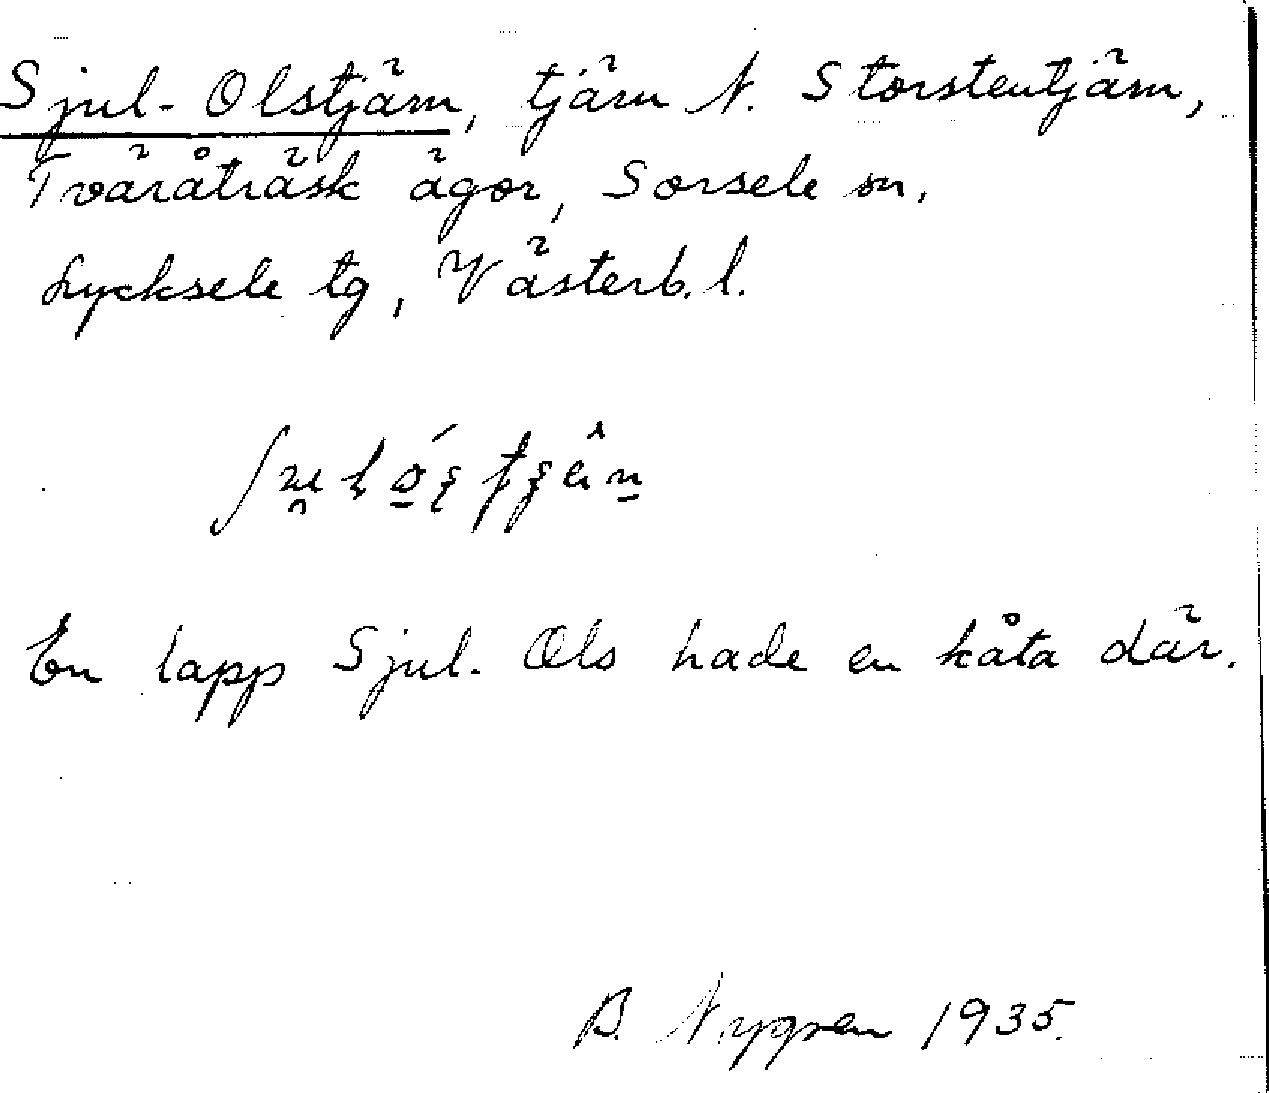 Sjul-Olstjärn, tjärn N. Storstentjärn,
Tväråträsk ägor, Sorsele sn.
Lycksele tg, Västerb. l.
En lapp Sjul-Ols hade en kåta där.
B. Nygren 1935.